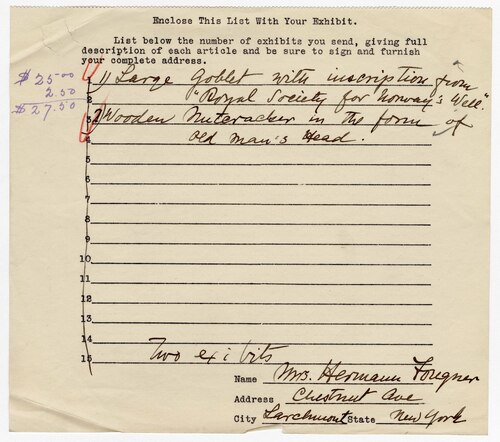 Enclose This List With Your Exhibit.
List below the number of exhibits you send, giving full
description of each article and be sure to sign and furnish
your complete address.
$25.00
2.50
$27.50
1 1) Large Goblet with inscription from
2 "Royal Society for Norway's Well."
3 2) Wooden Nutcracker in the form of
4 old man's Head.
5
6
7
8
9
10
11
12
13
14
15 Two exibits
Name Mrs. Hermann Fougner
Address Chestnut Ave
City Larchmont State New York